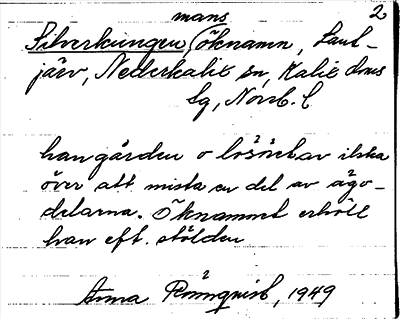 mans 2
Silverkungen, öknamn, Lanl-
järv, Nederkalix sn, Kalix dms
lg, Norrb. l
han gården o lösöret av ilska
över att mista en del av ägo-
delarna. Öknamnet erhöll
han eft. stölden
Anna Rönnquist, 1949